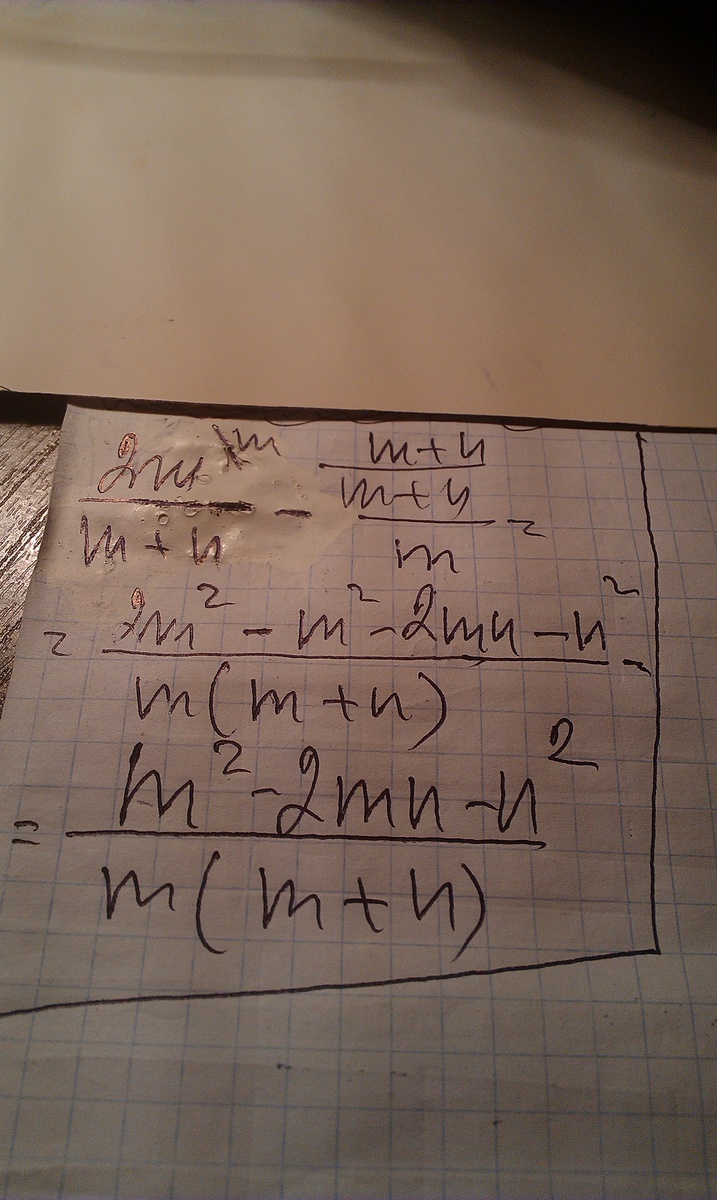 2m^m/(m+n) - (m+n)^(m+n)/m =
= (2m² - m² - 2mn - n²)/(m(m+n)) =
= (m² - 2mn - n²)/(m(m+n))